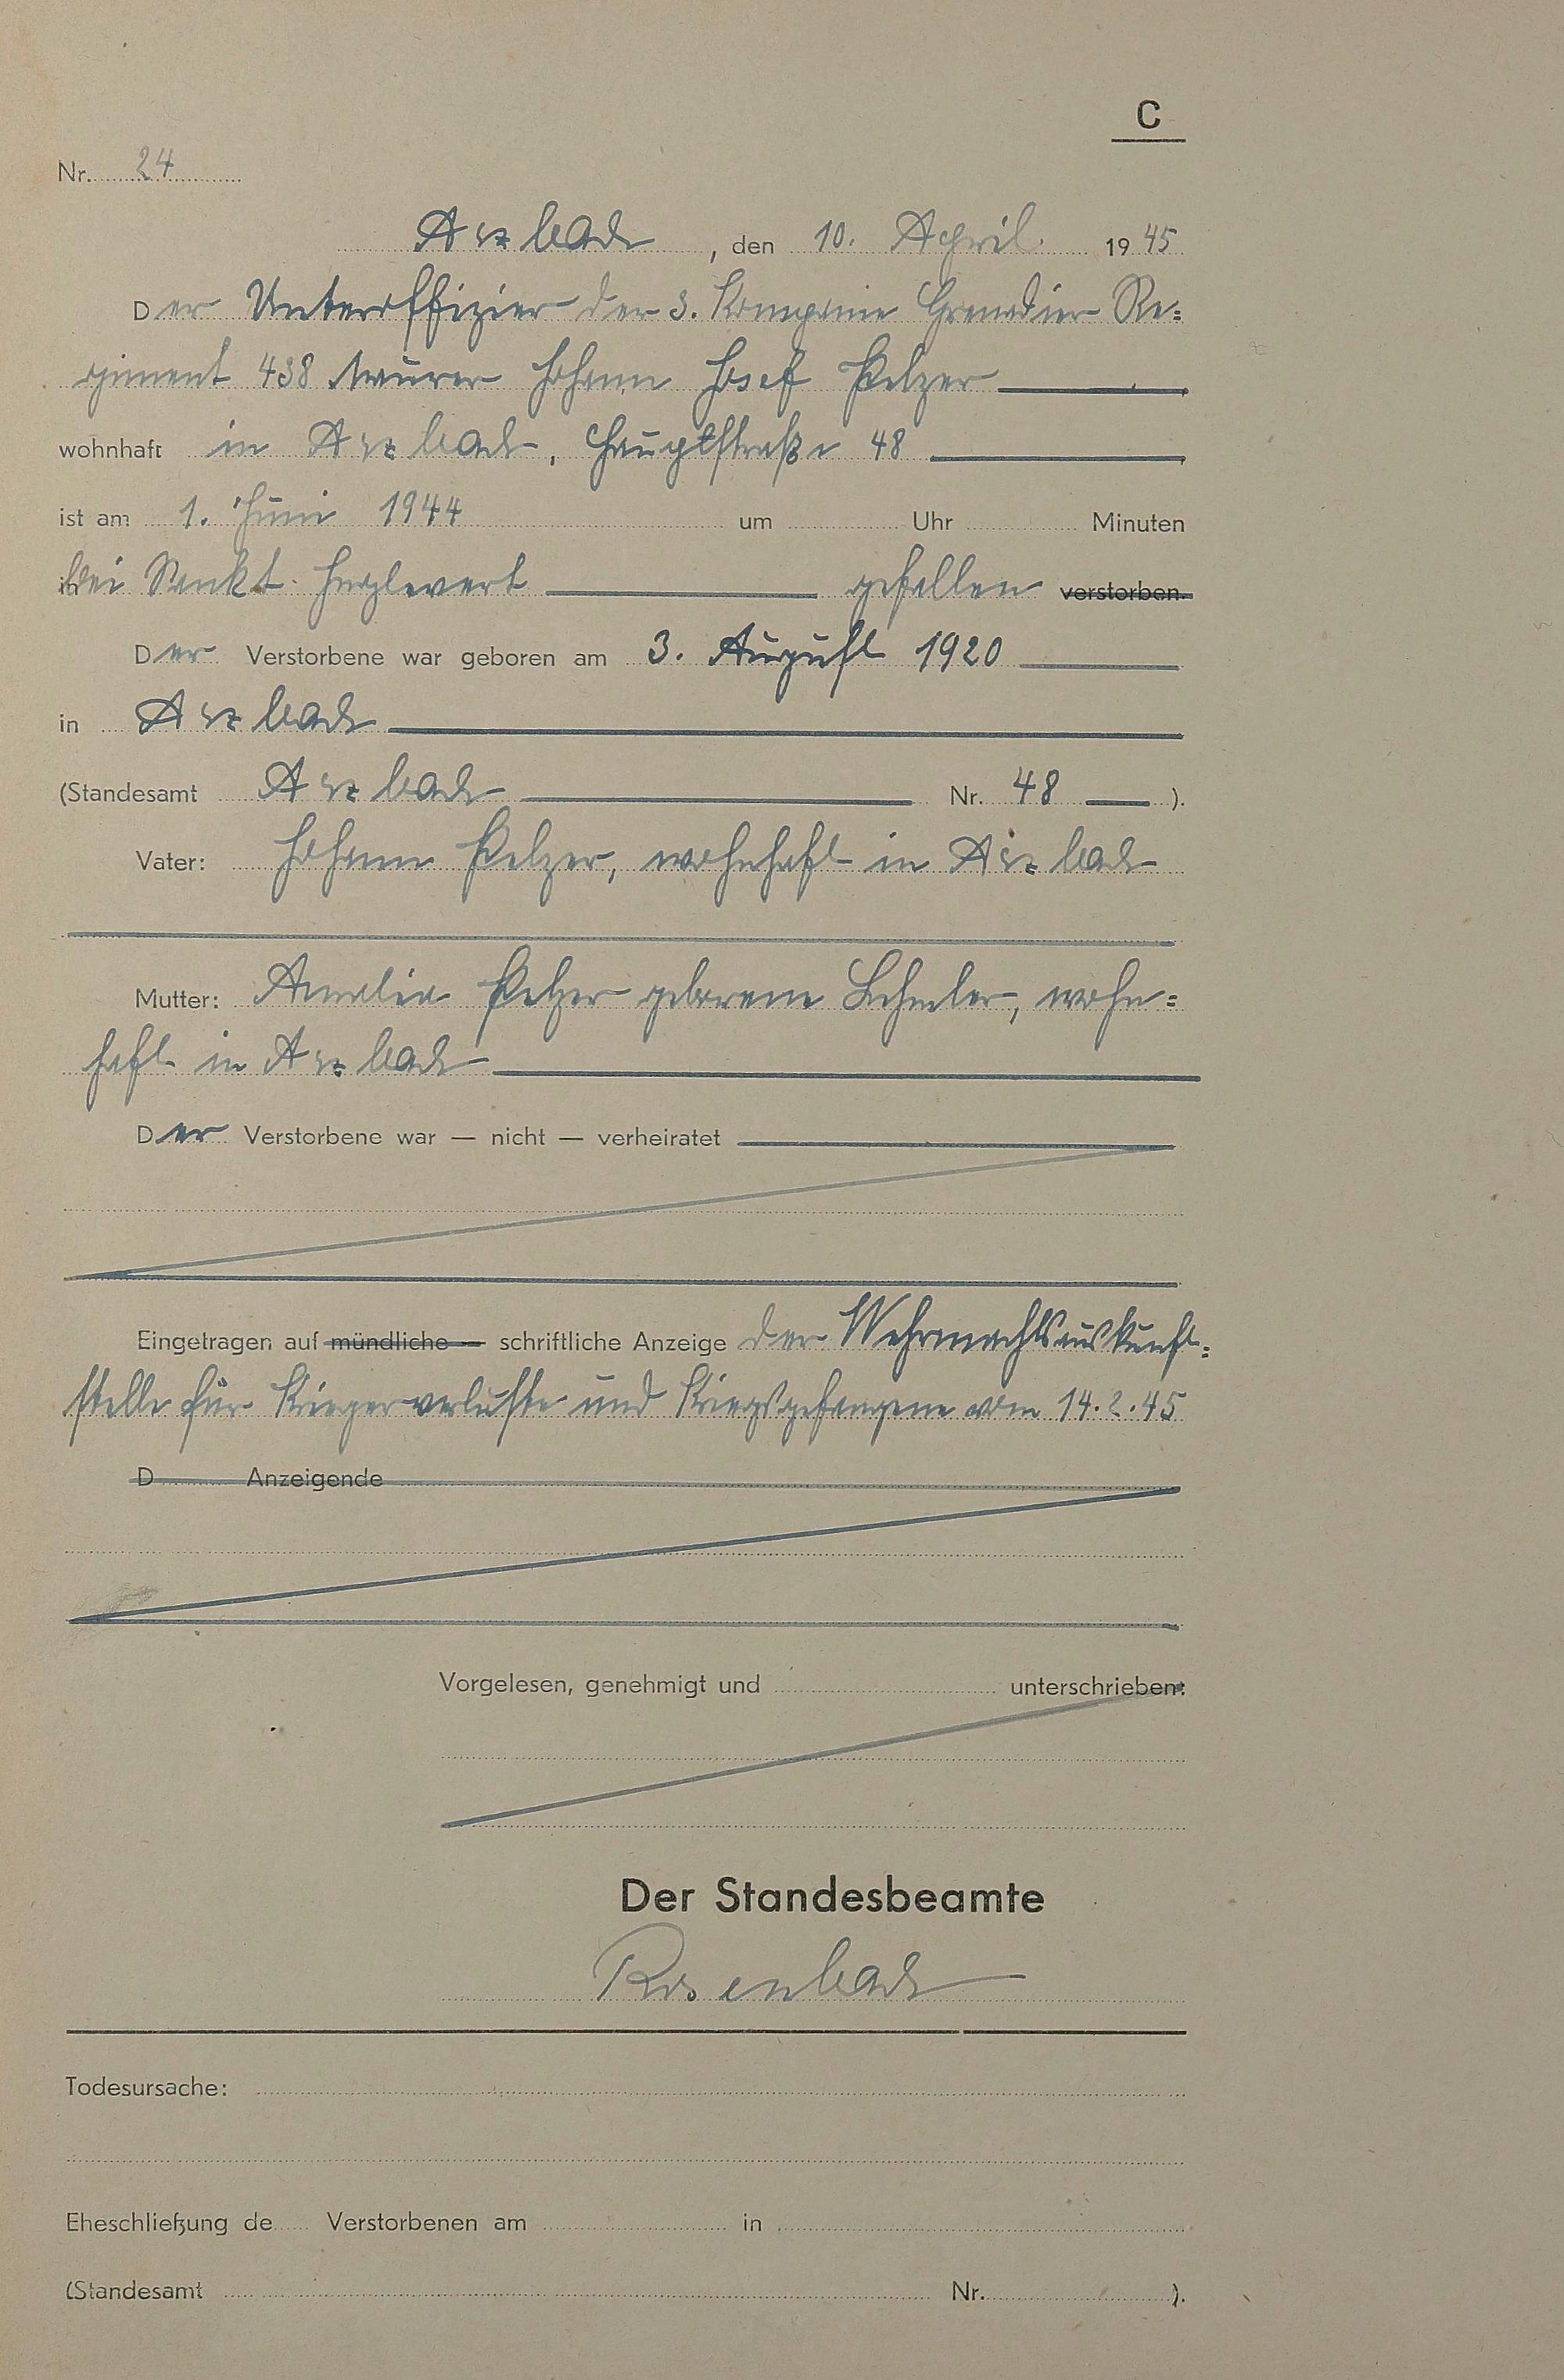 C
Nr. 24
Arzbach, den 10. April 1945
Der Unteroffizier der 3. Kompanie Grenadier-Re=
giment 438 Maurer Johann Josef Pelzer
wohnhaft in Arzbach, Hauptstraße 48
ist am 1. Juni 1944 um Uhr Minuten
bei Sankt gefallen verstorben.
Der Verstorbene war geboren am 3. August 1920
in Arzbach
(Standesamt Arzbach Nr. 48 ).
Vater: Johann Pelzer, wohnhaft in Arzbach
Mutter: Amalia Pelzer geborene wohn=
haft in Arzbach
Der Verstorbene war — nicht — verheiratet
Eingetragen auf mündliche — schriftliche Anzeige der Wehrmachtsauskunft=
stelle für Kriegerverluste und Kriegsgefangene vom 14.2.45
D Anzeigende
Vorgelesen, genehmigt und unterschrieben:
Der Standesbeamte
Rosenbach
Todesursache:
Eheschließung de Verstorbenen am in
(Standesamt Nr. ).